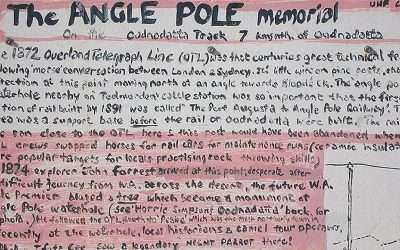 The ANGLE POLE memorial
UHF
On the Oodnadatta Track 7 kmsnth of Oodnadatta
1872 Overland Telegraph Line (OTL) was that centuries great technical
morse conversation between London & Sydney.
direction at this point moving north on angle towards The angle
waterhole nearby on Todmorden cattle station was so important that the first
of rail built by 1891 was called "The Port Augusta to Angle Pole Railway".
was a support base before the rail or Oodnadatta were built. The rail
close to the OTL here & this spot would have been abandoned when
crews swapped horses for rail cars for maintenance runs (ceramic
popular targets for locals practising rock throwing skills)
1874 explorer John Forrest arrived at this point, desperate after
difficult journey from W.A. across the desert, the future W.A.
Premier blazed a tree which became a monument at
Pole waterhole (see Horrie Simpson's "Oodnadatta" book, for
photo). He followed the
recently at the waterhole, local historians & camel tour operators,
saw a legendary NIGHT PARROT there!